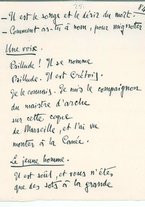 — Il est le songe et le désir du mort.
— Comment as-tu à nom, pour mignoter
Une voix.
Paillude! Il se nomme
Paillude. Il est Crétois.
Je le connais. Je suis le compagnon
du maistre d'arche
sur cette coque
de Marseille, et l'ai vu
monter à la Canée.
Le jeune homme.
Il est seul, et vous n'êtes
que des sots à la grande